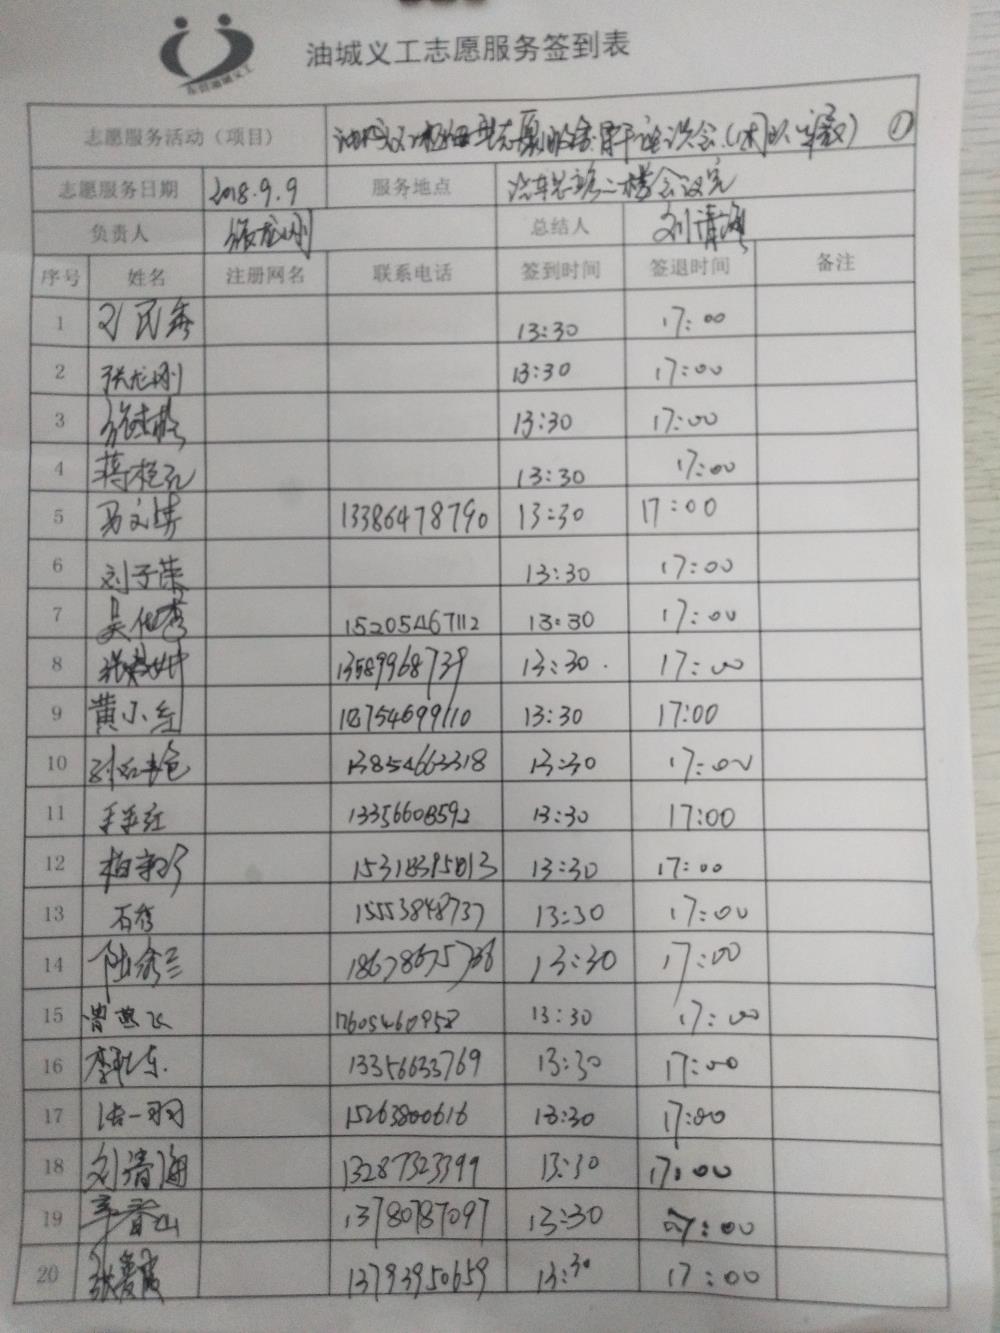 油城义工志愿服务签到表
志愿服务活动（项目） ①
志愿服务日期 2018.9.9 服务地点 汽车总站二楼会议室
负责人 张龙刚 总结人 刘清海
序号 姓名 注册网名 联系电话 签到时间 签退时间 备注
1 13:30 17:00
2 张龙刚 13:30 17:00
3 13:30 17:00
4 13:30 17:00
5 马文涛 13386478790 13:30 17:00
6 刘子荣 13:30 17:00
7 15205467112 13:30 17:00
8 13589968739 13:30 17:00
9 黄小红 18754699110 13:30 17:00
10 13854663318 13:30 17:00
11 13356608592 13:30 17:00
12 13:30 17:00
13 石秀 15553848737 13:30 17:00
14 陆秀兰 13:30 17:00
15 曹燕飞 17605460958 13:30 17:00
16 13356633769 13:30 17:00
17 15263800616 13:30 17:00
18 刘清海 13287323399 13:30 17:00
19 辛春山 13780787097 13:30 17:00
20 张爱霞 13793950659 13:30 17:00